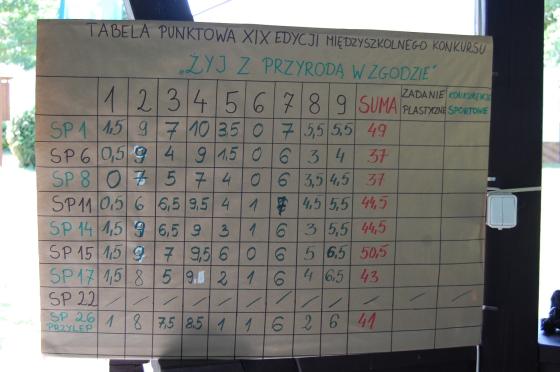 TABELA PUNKTOWA XIX EDYCJI MIĘDZYSZKOLNEGO KONKURSU
„ŻYJ Z PRZYRODĄ W ZGODZIE"
1 2 3 4 5 6 7 8 9 SUMA ZADANIE PLASTYCZNE KONKURENCJE SPORTOWE
SP 1 1,5 9 7 10 3,5 0 7 5,5 5,5 49
SP 6 0,5 9 4 9 1,5 0 6 3 4 37
SP 8 0 7 5 7 4 0 6 3,5 4,5 37
SP 11 0,5 6 6,5 9,5 4 1 7 4,5 5,5 44,5
SP 14 1,5 9 6,5 9 3 1 6 3 5,5 44,5
SP 15 1,5 9 7 9,5 6 0 6 5 6,5 50,5
SP 17 1,5 8 5 9 2 1 6 4 6,5 43
SP 22 / / / / / / / / / / / /
SP 26 PRZYLEP 1 8 7,5 8,5 1 1 6 2 6 41